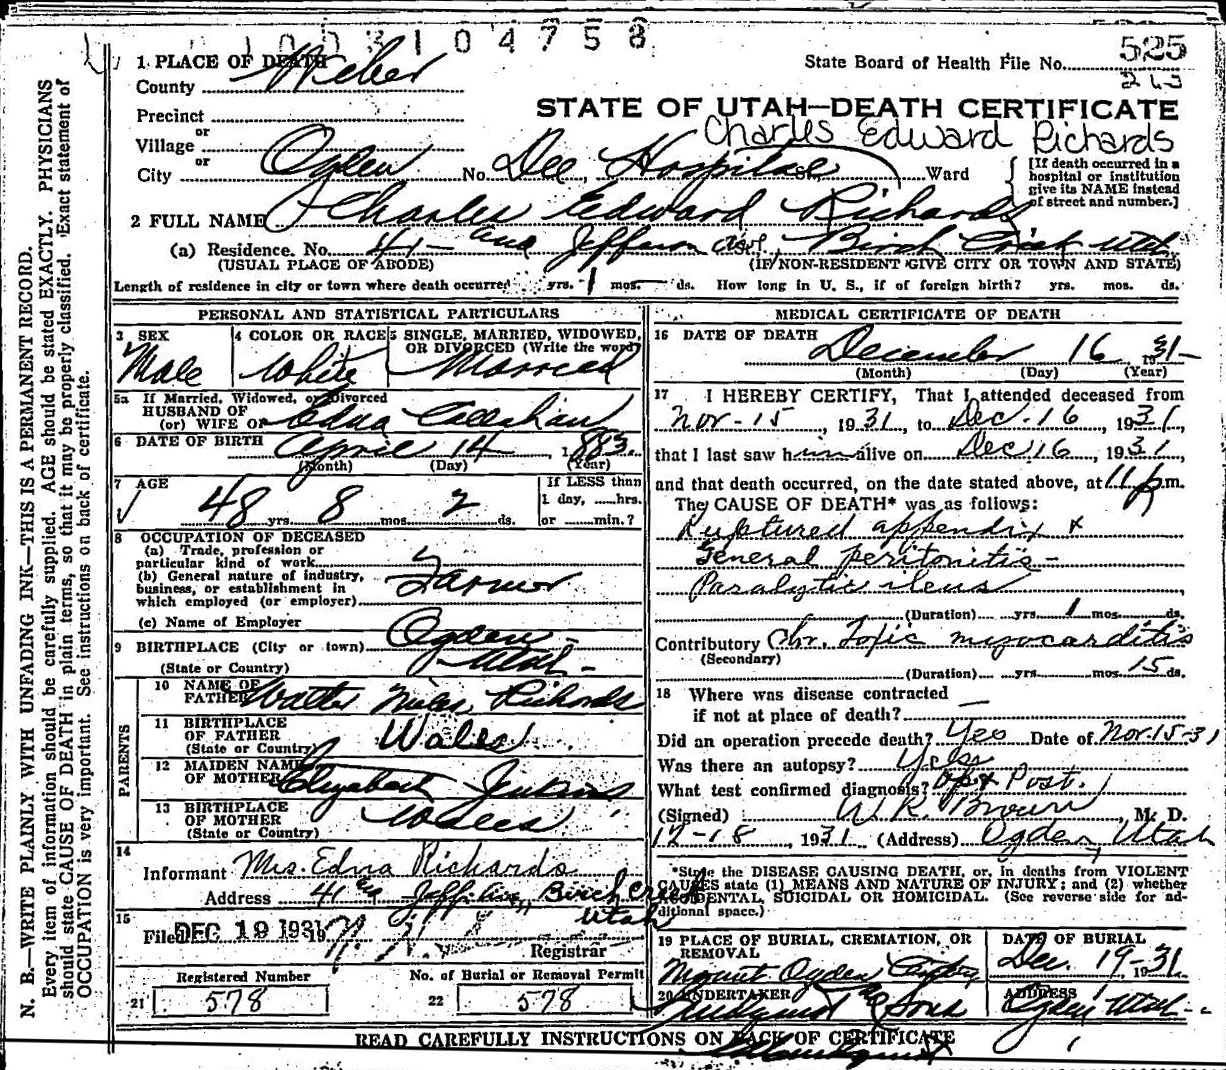 1003104758
525
1 PLACE OF DEATH
State Board of Health File No.
County Weber
213
STATE OF UTAH—DEATH CERTIFICATE
Precinct
or
Charles Edward Richards
Village
or
City Ogden No. Dee Hospital St., Ward
[If death occurred in a hospital or institution give its NAME instead of street and number.]
2 FULL NAME Charles Edward Richards
(a) Residence. No. 41- and Jefferson Ave, Birch Creek Utah
(USUAL PLACE OF ABODE) (IF NON-RESIDENT GIVE CITY OR TOWN AND STATE)
Length of residence in city or town where death occurred yrs. 1 mos. ds. How long in U. S., if of foreign birth? yrs. mos. ds.
PERSONAL AND STATISTICAL PARTICULARS
3 SEX
Male
4 COLOR OR RACE
White
5 SINGLE, MARRIED, WIDOWED,
OR DIVORCED (Write the word)
Married
5a If Married, Widowed, or Divorced
HUSBAND OF
(or) WIFE OF Edna Callahan
6 DATE OF BIRTH April 14 1883.
(Month) (Day) (Year)
7 AGE
48 yrs. 8 mos. 2 ds.
If LESS than
1 day, hrs.
or min.?
8 OCCUPATION OF DECEASED
(a) Trade, profession or
particular kind of work
(b) General nature of industry,
business, or establishment in
which employed (or employer)
Farmer
(c) Name of Employer
9 BIRTHPLACE (City or town) Ogden -
(State or Country) Utah -
PARENTS
10 NAME OF
FATHER Walter Miles Richards
11 BIRTHPLACE
OF FATHER
(State or Country) Wales
12 MAIDEN NAME
OF MOTHER Elizabeth Jenkins
13 BIRTHPLACE
OF MOTHER
(State or Country) Wales
14
Informant Mrs. Edna Richards
Address 41 and Jefferson, Birch Creek
Utah
15
Filed DEC 19 1931
Registrar
Registered Number
21 578
No. of Burial or Removal Permit
22 578
MEDICAL CERTIFICATE OF DEATH
16 DATE OF DEATH
December 16, 1931-
(Month) (Day) (Year)
17 I HEREBY CERTIFY, That I attended deceased from
Nov-15, 1931, to Dec. 16 1931,
that I last saw him alive on Dec 16, 1931,
and that death occurred, on the date stated above, at 11 p.m.
The CAUSE OF DEATH* was as follows:
Ruptured appendix &
General peritonitis -
Paralytic ileus
(Duration) yrs. 1 mos. ds.
Contributory Chr. Toxic myocarditis
(Secondary)
(Duration) yrs. mos. 15 ds.
18 Where was disease contracted
if not at place of death? —
Did an operation precede death? Yes Date of Nov. 15-31
Was there an autopsy? Yes
What test confirmed diagnosis? Op & Post.
(Signed) W. R. Brown, M. D.
12-18, 1931 (Address) Ogden, Utah
*State the DISEASE CAUSING DEATH, or, in deaths from VIOLENT
CAUSES state (1) MEANS AND NATURE OF INJURY; and (2) whether
ACCIDENTAL, SUICIDAL OR HOMICIDAL. (See reverse side for ad-
ditional space.)
19 PLACE OF BURIAL, CREMATION, OR
REMOVAL
Mount Ogden
DATE OF BURIAL
Dec. 19-, 1931
20 UNDERTAKER
& Sons
ADDRESS
Ogden Utah -
READ CAREFULLY INSTRUCTIONS ON BACK OF CERTIFICATE
N. B.—WRITE PLAINLY WITH UNFADING INK—THIS IS A PERMANENT RECORD.
Every item of information should be carefully supplied. AGE should be stated EXACTLY. PHYSICIANS
should state CAUSE OF DEATH in plain terms, so that it may be properly classified. Exact statement of
OCCUPATION is very important. See instructions on back of certificate.